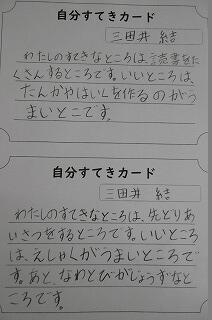 自分すてきカード
三田井 結
わたしのすてきなところは、読書をた
くさんするところです。いいところは、
たんかやはいくを作るのがう
まいとこです。
自分すてきカード
三田井 結
わたしのすてきなところは、先どりあ
いさつをするところです。いいところ
は、えしゃくがうまいところで
す。あと、なわとびがじょうずなと
ころです。